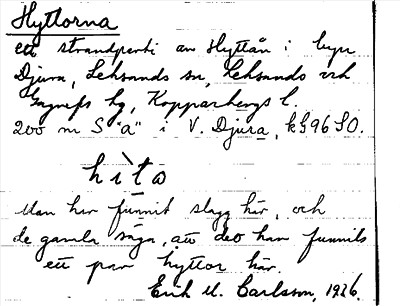 Hyttorna
ett strandparti av Hyttån i byn
Djura, Leksands sn, Leksands och
Gagnefs tg, Kopparbergs l.
200 m S "a" i V. Djura, k G96SO.
hìta
Man har funnit slagg här, och
de gamla säga, att det har funnits
ett par hyttor här.
Erik M. Carlsson, 1926.